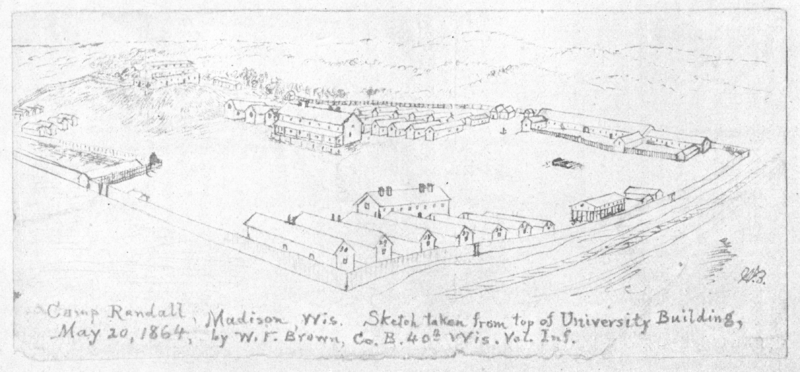 W.B.
Camp Randall, Madison, Wis. Sketch taken from top of University Building,
May 20, 1864, by W. F. Brown, Co. B. 40th Wis. Vol. Inf.